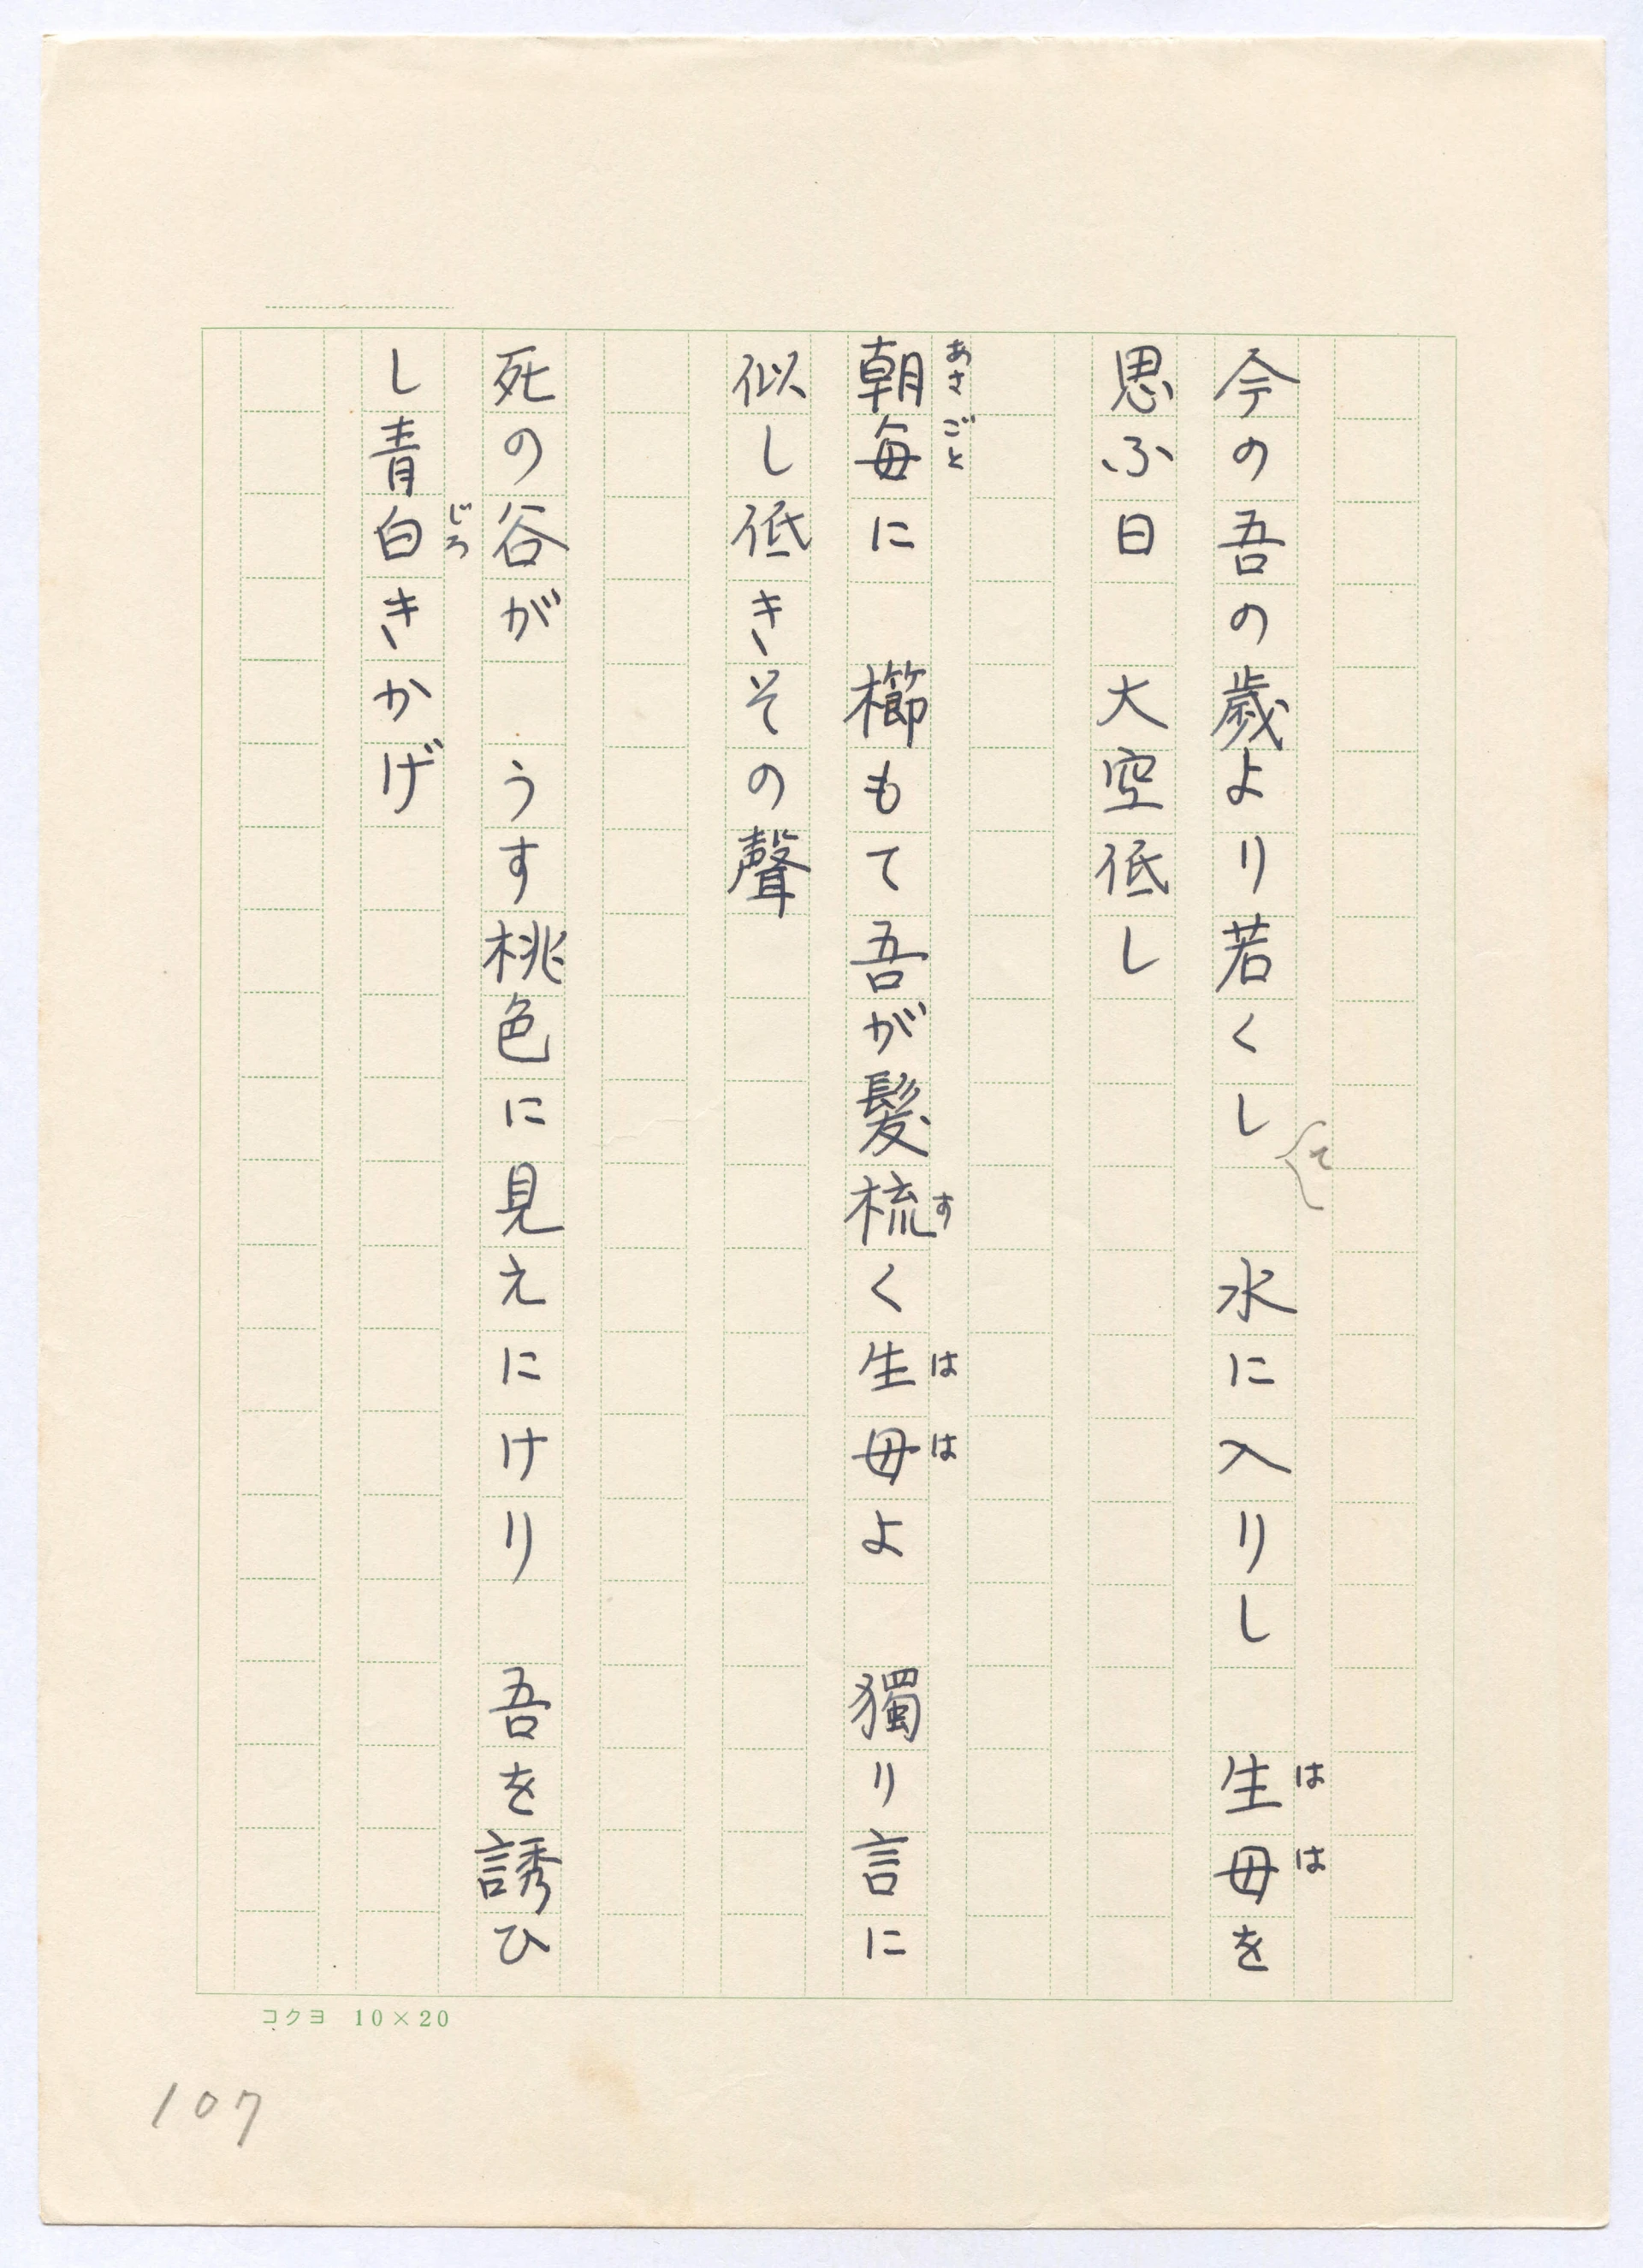 今の吾の歳より若くして　水に入りし　生母を
思ふ日　大空低し
朝毎に　櫛もて吾が髪梳く生母よ　獨り言に
似し低きその聲
死の谷が　うす桃色に見えにけり　吾を誘ひ
し青白きかげ
あさごと
す
はは
はは
じろ
コクヨ 10×20
107